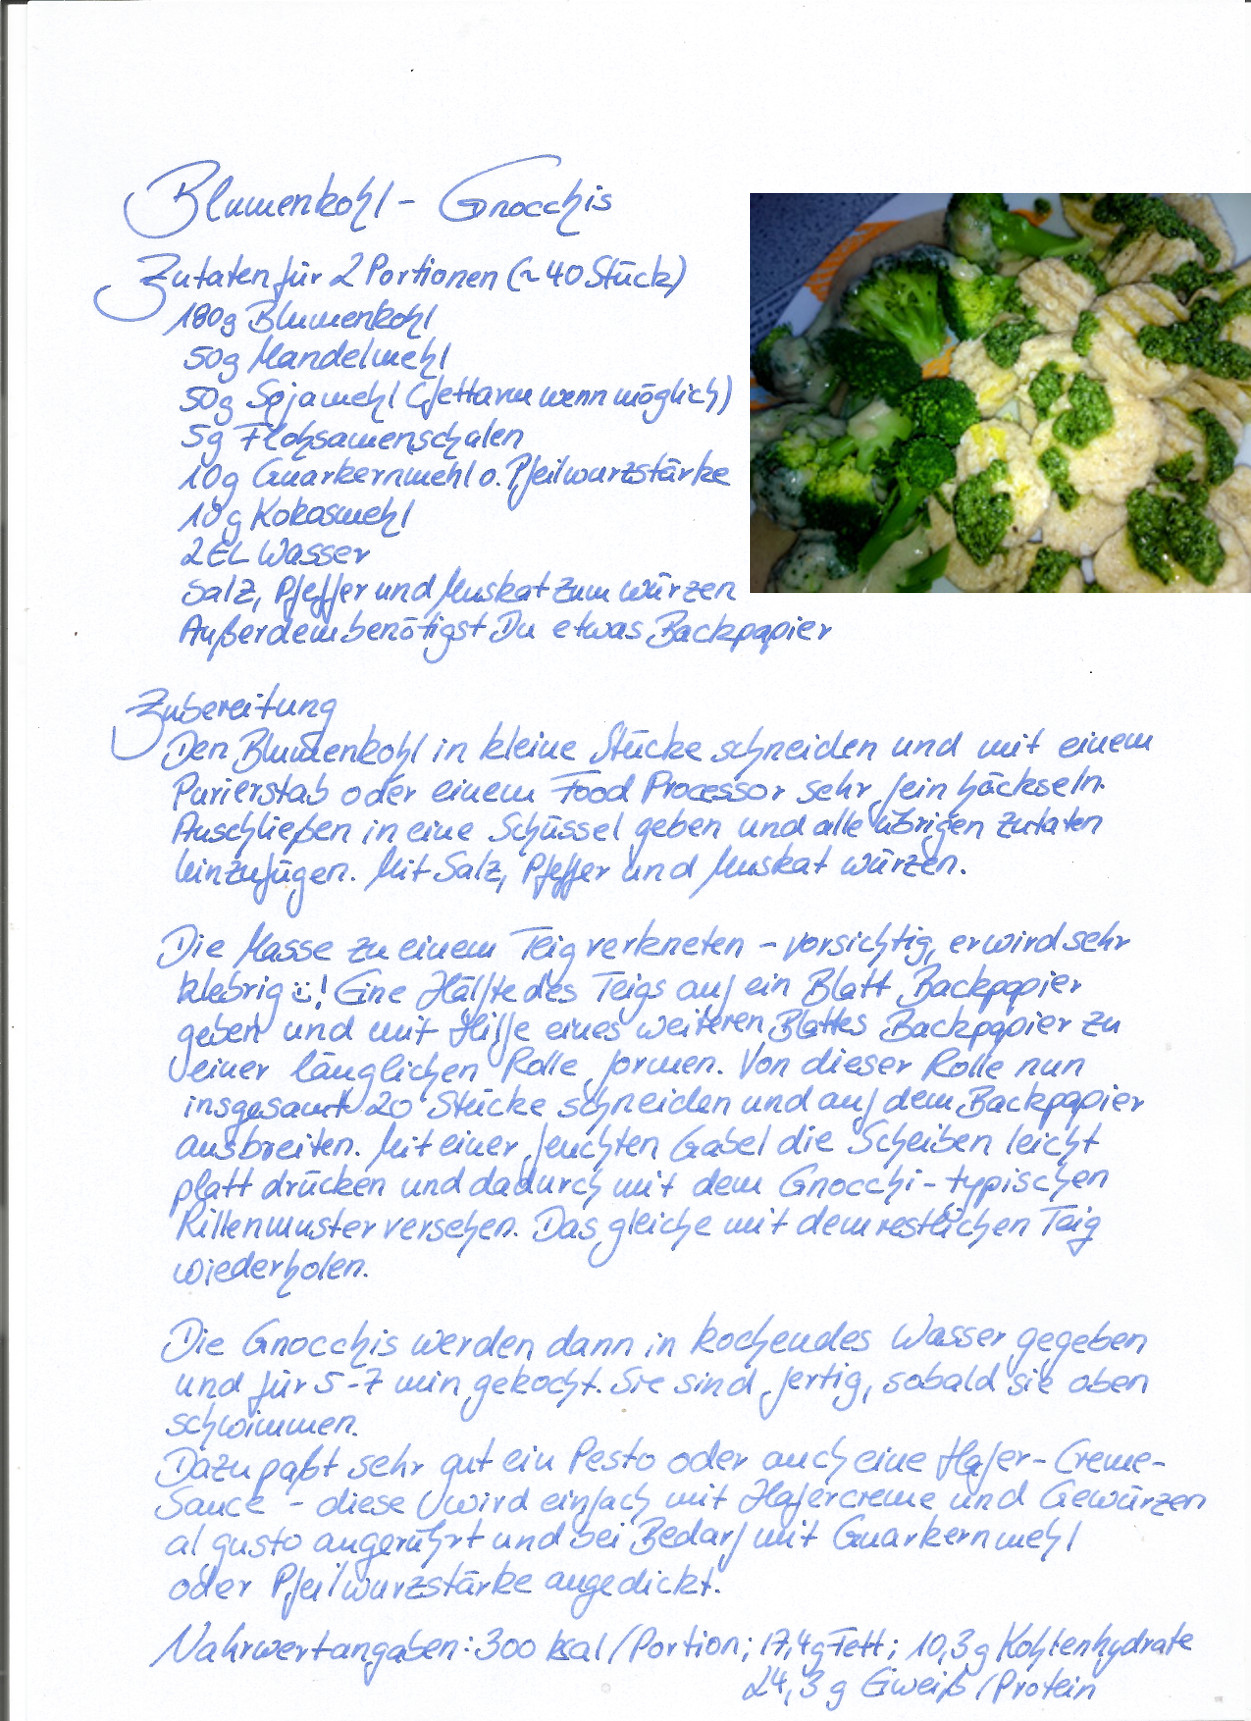 Blumenkohl - Gnocchis
Zutaten für 2 Portionen (~ 40 Stück)
180g Blumenkohl
50g Mandelmehl
50g Sojamehl (fettarm wenn möglich)
5g Flohsamenschalen
10g Guarkernmehl o. Pfeilwurzstärke
10g Kokosmehl
2 EL Wasser
Salz, Pfeffer und Muskat zum würzen
Außerdem benötigst Du etwas Backpapier
Zubereitung
Den Blumenkohl in kleine Stücke schneiden und mit einem
Purierstab oder einem Food Processor sehr fein häckseln.
Anschließen in eine Schüssel geben und alle übrigen Zutaten
hinzufügen. Mit Salz, Pfeffer und Muskat würzen.
Die Masse zu einem Teig verkneten - vorsichtig, er wird sehr
klebrig ü! Eine Hälfte des Teigs auf ein Blatt Backpapier
geben und mit Hilfe eines weiteren Blattes Backpapier zu
einer länglichen Rolle formen. Von dieser Rolle nun
insgesamt 20 Stücke schneiden und auf dem Backpapier
ausbreiten. Mit einer feuchten Gabel die Scheiben leicht
platt drücken und dadurch mit dem Gnocchi-typischen
Rillenmuster versehen. Das gleiche mit dem restlichen Teig
wiederholen.
Die Gnocchis werden dann in kochendes Wasser gegeben
und für 5-7 min gekocht. Sie sind fertig, sobald sie oben
schwimmen.
Dazu paßt sehr gut ein Pesto oder auch eine Hafer-Creme-
Sauce - diese wird einfach mit Hafercreme und Gewürzen
al gusto angerührt und bei Bedarf mit Guarkernmehl
oder Pfeilwurzstärke angedickt.
Nahrwertangaben: 300 kcal/Portion; 17,4g Fett; 10,3g Kohlenhydrate
24,3 g Eiweiß/Protein